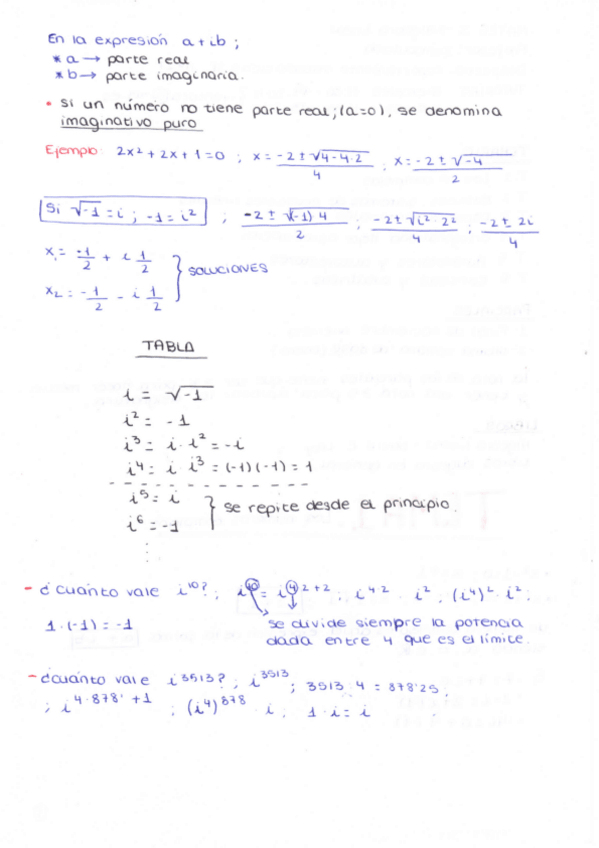 En la expresión a + ib ;
* a → parte real
* b → parte imaginaria.
• si un número no tiene parte real; (a=0), se denomina
imaginativo puro
Ejemplo: 2x² + 2x + 1 = 0 ; x = -2 ± √4-4·2 / 4 ; x = -2 ± √-4 / 2
Si √-1 = i ; -1 = i² ; -2 ± √(-1) 4 / 2 ; -2 ± √i² · 2² / 4 ; -2 ± 2i / 4
x₁ = -1/2 + i 1/2
x₂ = -1/2 - i 1/2 } SOLUCIONES
TABLA
i = √-1
i² = -1
i³ = i · i² = -i
i⁴ = i · i³ = (-1)(-1) = 1
i⁵ = i
i⁶ = -1 } se repite desde el principio.
- ¿cuánto vale i¹⁰? ; i¹⁰ = i⁴ ²⁺² ; i⁴² i² ; (i⁴)² · i² :
1 · (-1) = -1 se divide siempre la potencia
dada entre 4 que es el límite.
- ¿cuánto vale i³⁵¹³? ; i³⁵¹³ ; 3513 · 4 = 878'25.
; i⁴·⁸⁷⁸' ⁺¹ ; (i⁴)⁸⁷⁸ · i ; 1 · i = i